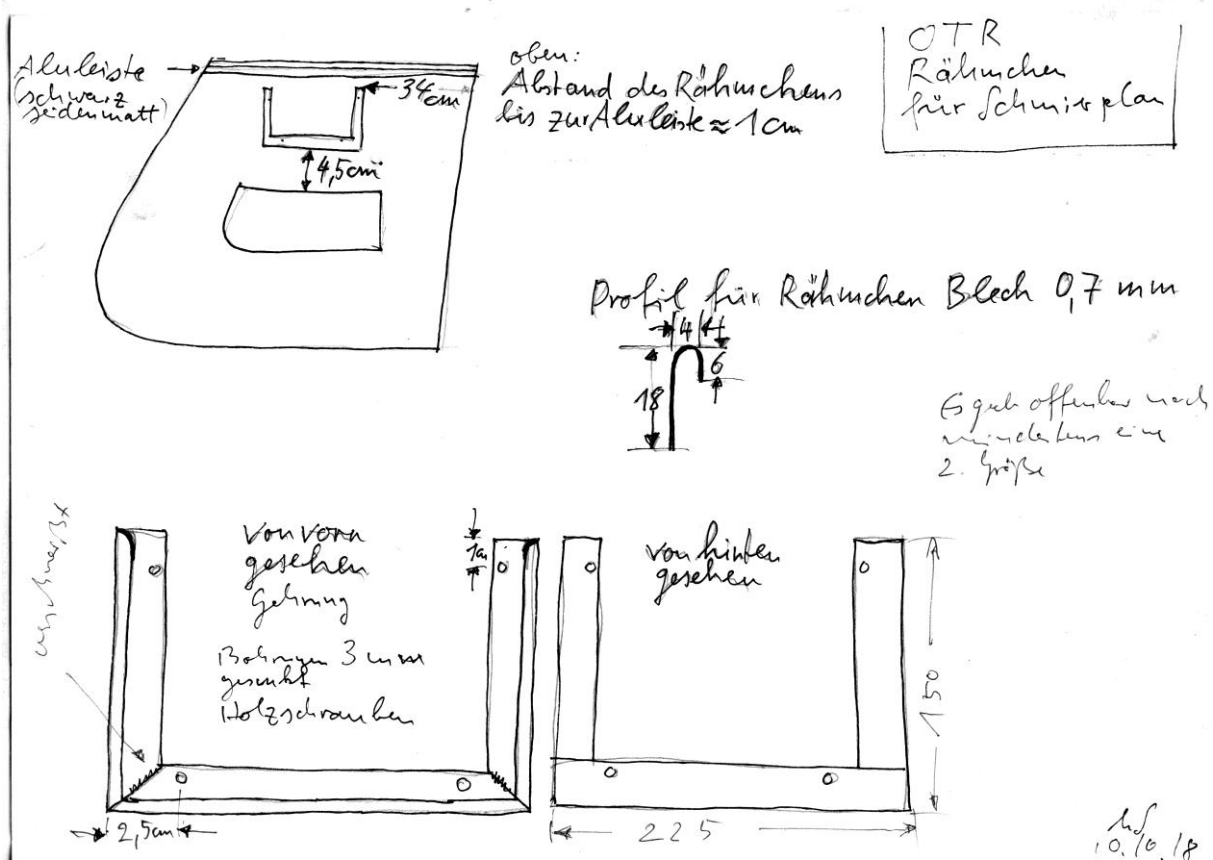 Aluleiste
(schwarz
seidenmatt)
34cm
4,5cm
oben:
Abstand des Rähmchens
bis zur Aluleiste ≈ 1 cm
OTR
Rähmchen
für Schmierplan
Profil für Rähmchen Blech 0,7 mm
4
6
18
Es gab offenbar noch
mindestens eine
2. Größe
von vorn
gesehen
Gehrung
Bohrungen 3 mm
gesenkt
Holzschrauben
1cm
von hinten
gesehen
150
2,5cm
225
10.10.18